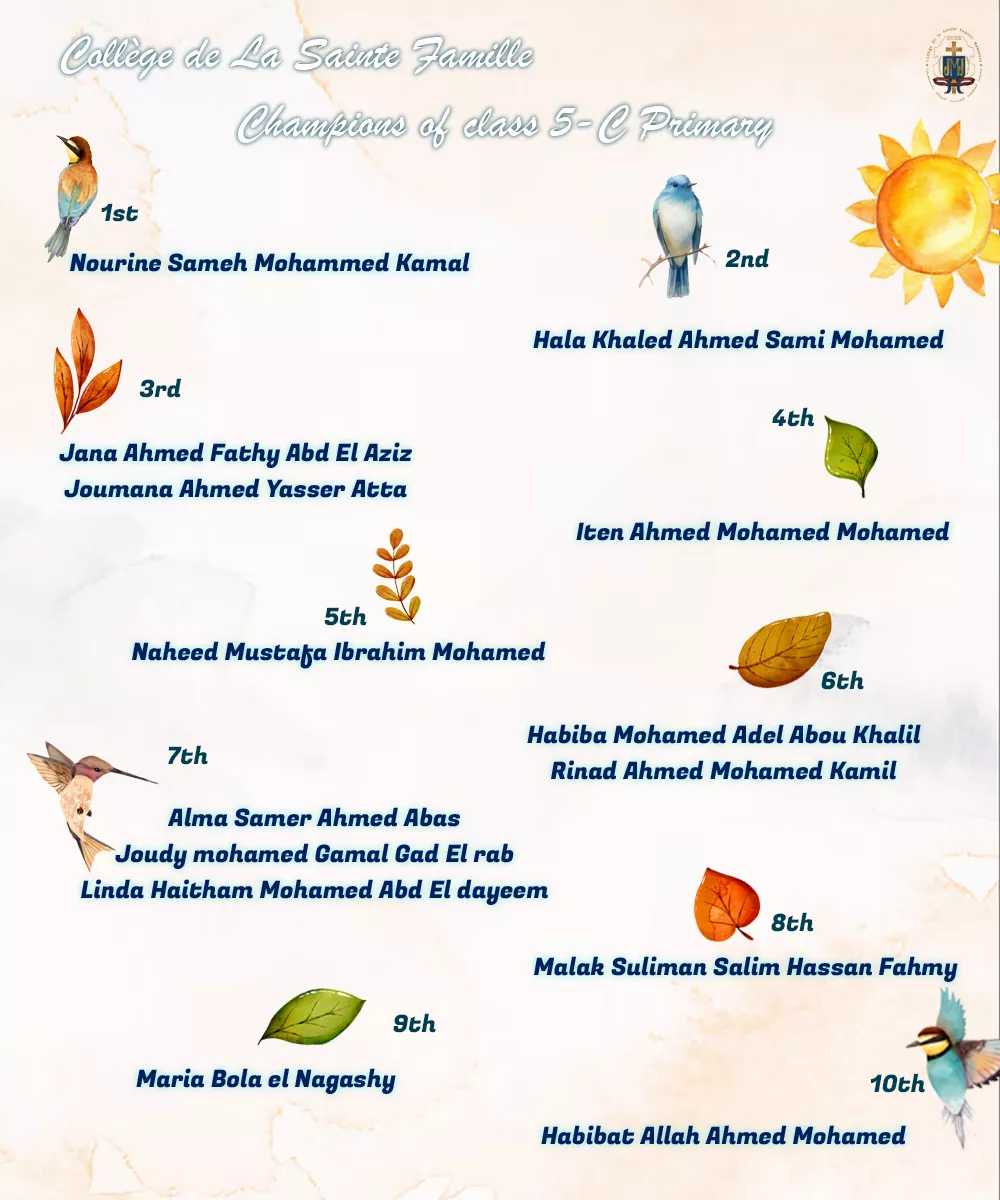 Collège de La Sainte Famille
Champions of class 5-C Primary
1st
Nourine Sameh Mohammed Kamal
2nd
Hala Khaled Ahmed Sami Mohamed
3rd
Jana Ahmed Fathy Abd El Aziz
Joumana Ahmed Yasser Atta
4th
Iten Ahmed Mohamed Mohamed
5th
Naheed Mustafa Ibrahim Mohamed
6th
Habiba Mohamed Adel Abou Khalil
Rinad Ahmed Mohamed Kamil
7th
Alma Samer Ahmed Abas
Joudy mohamed Gamal Gad El rab
Linda Haitham Mohamed Abd El dayeem
8th
Malak Suliman Salim Hassan Fahmy
9th
Maria Bola el Nagashy
10th
Habibat Allah Ahmed Mohamed